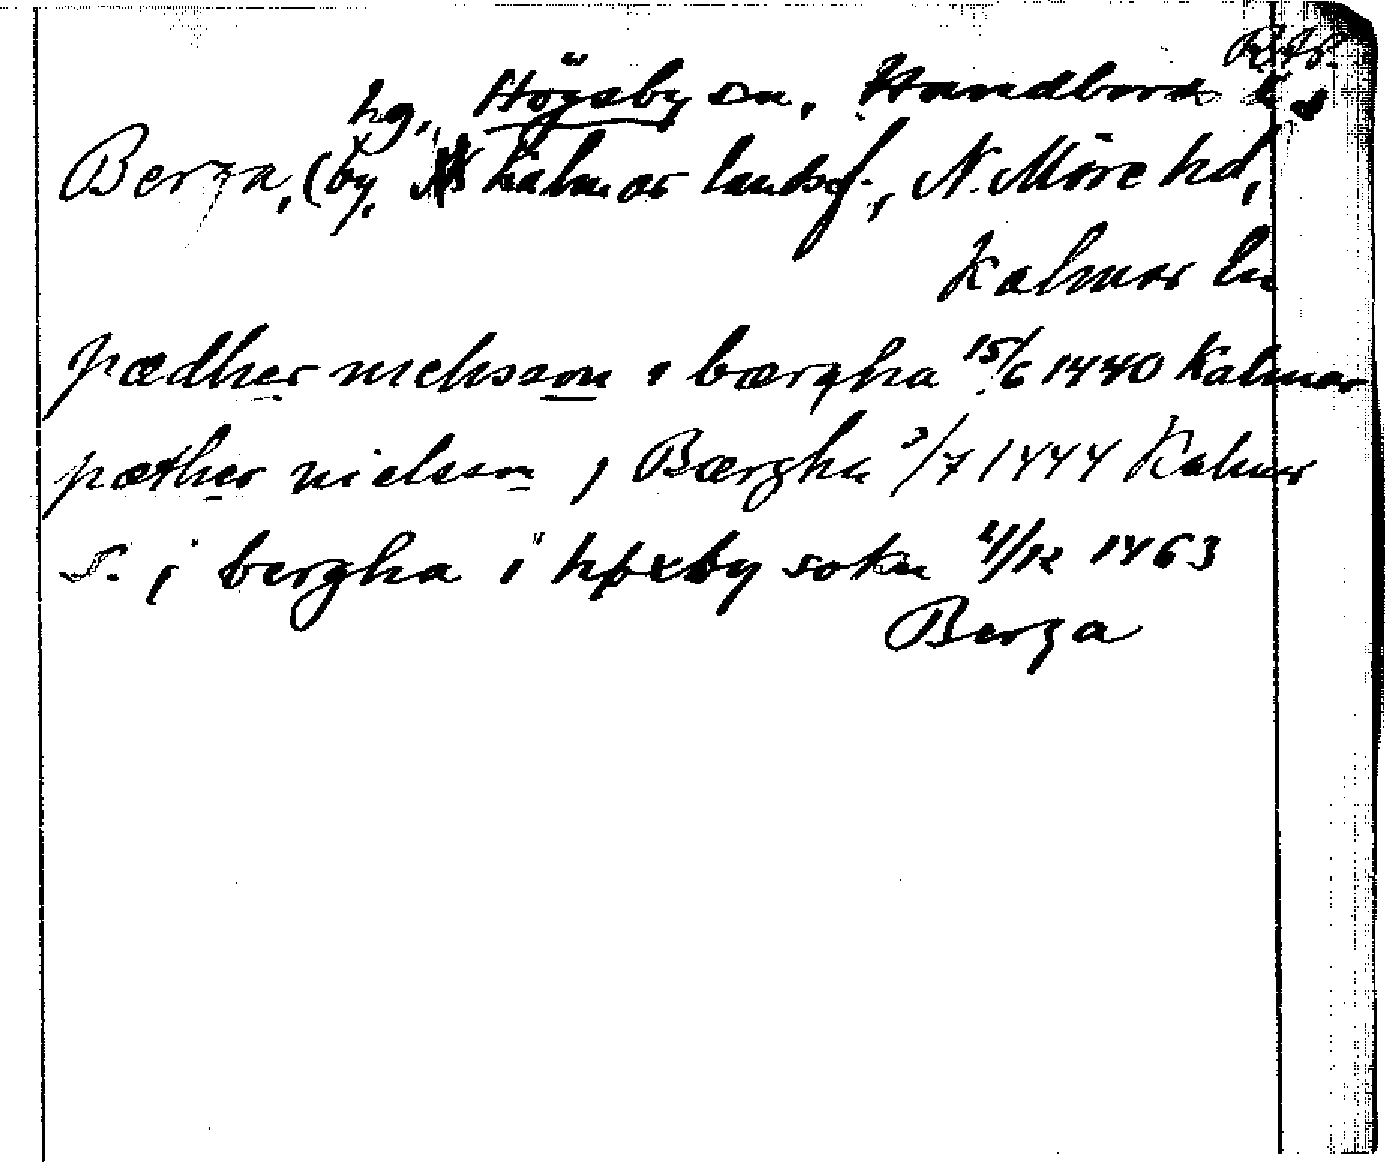 RAP.
hg. Högsby sn, Handbords hd
Berga, (by, Kalmar landsf., N. Möre hd,
Kalmar län
pædher niclisson i bærgha 15/6 1440 Kalmar
pæther nielsson j Bærgha 3/7 1444 Kalmar
S. j bergha i høxby sokn 4/12 1463
Berga